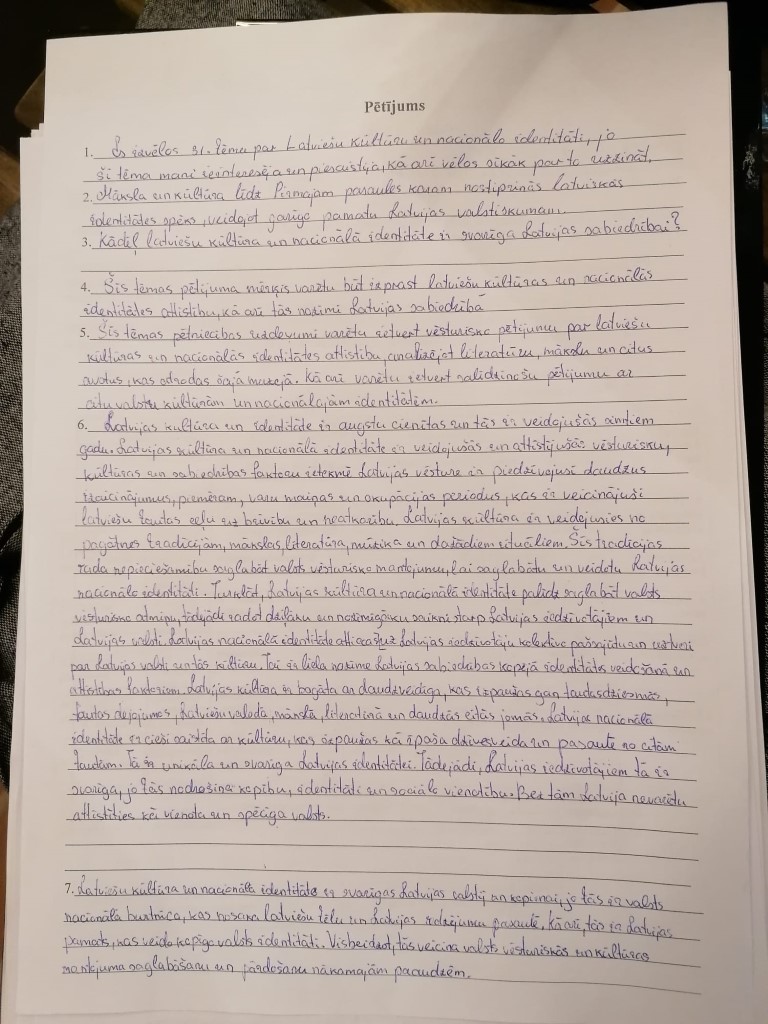 Pētījums
1. Es izvēlos 31. tēmu par Latviešu kūltūru un nacionālo identitāti, jo
šī tēma mani ieinteresēja un piesaistīja, kā arī vēlos sīkāk par to uzzināt.
2. Māksla un kūltūra līdz Pirmajam pasaules karam nostiprinās latviskās
identitātes spēks, veidojot garīgo pamatu Latvijas valstiskumam.
3. Kādēļ latviešu kūltūra un nacionālā identitāte ir svarīga Latvijas sabiedrībai?
4. Šīs tēmas pētījuma mērķis varētu būt izprast latviešu kūltūras un nacionālās
identitātes attīstību, kā arī tās nozīmi Latvijas sabiedrībā
5. Šīs tēmas pētniecības uzdevumi varētu ietvert vēsturisko pētījumu par latviešu
kūltūras un nacionālās identitātes attīstību, analizējot literatūru, mākslu un citus
avotus, kas atrodas šajā muzejā. Kā arī varētu ietvert salīdzinošu pētījumu ar
citu valstu kūltūrām un nacionālajām identitātēm.
6. Latvijas kūltūra un identitāte ir augstu cienītas un tās ir veidojušās simtiem
gadu. Latvijas kūltūra un nacionālā identitāte ir veidojušās un attīstījušās vēsturisku,
kūltūras un sabiedrības faktoru ietekmē Latvijas vēsture ir piedzīvojusi daudzus
izaicinājumus, piemēram, varu maiņas un okupācijas periodus, kas ir veicinājuši
latviešu tautas ceļu uz brīvību un neatkarību. Latvijas kūltūra ir veidojusies no
pagātnes tradīcijām, mākslas, literatūra, mūzika un dažādiem rituāliem. Šīs tradīcijas
rada nepieciešamību saglabāt valsts vēsturisko mantojumu, lai saglabātu un veidotu Latvijas
nacionālo identitāti. Turklāt, Latvijas kūltūra un nacionālā identitāte palīdz saglabāt valsts
vēsturisko atmiņu, tādējādi radot dziļāku un nozīmīgāku saikni starp Latvijas iedzīvotājiem un
Latvijas valsti. Latvijas nacionālā identitāte attiecas uz Latvijas iedzīvotāju kolektīvo pašapziņu un uztveri
par Latvijas valsti un tās kūltūru. Tai ir liela nozīme Latvijas sabiedrības kopējā identitātes veidošanā un
attīstības faktoriem. Latvijas kūltūra ir bagāta ar daudzveidīga, kas izpaužas gan tautasdziesmās,
tautas dejojumos, Latviešu valodā, mākslā, literatūrā un daudzās citās jomās. Latvijas nacionālā
identitāte ir cieši saistīta ar kūltūru, kas izpaužas kā īpaša dzīvesveida un pasaulē no citām
tautām. Tā ir unikāla un svarīga Latvijas identitātei. Tādejādi, Latvijas iedzīvotājiem tā ir
svarīga, jo tās nodrošina kopību, identitāti un sociālo vienotību. Bez tām Latvija nevarētu
attīstīties kā vienota un spēcīga valsts.
7. Latviešu kūltūra un nacionālā identitāte ir svarīgas Latvijas valstij un kopienai, jo tās ir valsts
nacionālā burtnīca, kas nosaka latviešu tēlu un Latvijas redzējumu pasaulē. Kā arī, tās ir Latvijas
pamats, kas veido kopīgo valsts identitāti. Visbeidzot, tās veicina valsts vēsturiskās un kūltūras
mantojuma saglabāšanu un pārdošanu nākamajām paaudzēm.